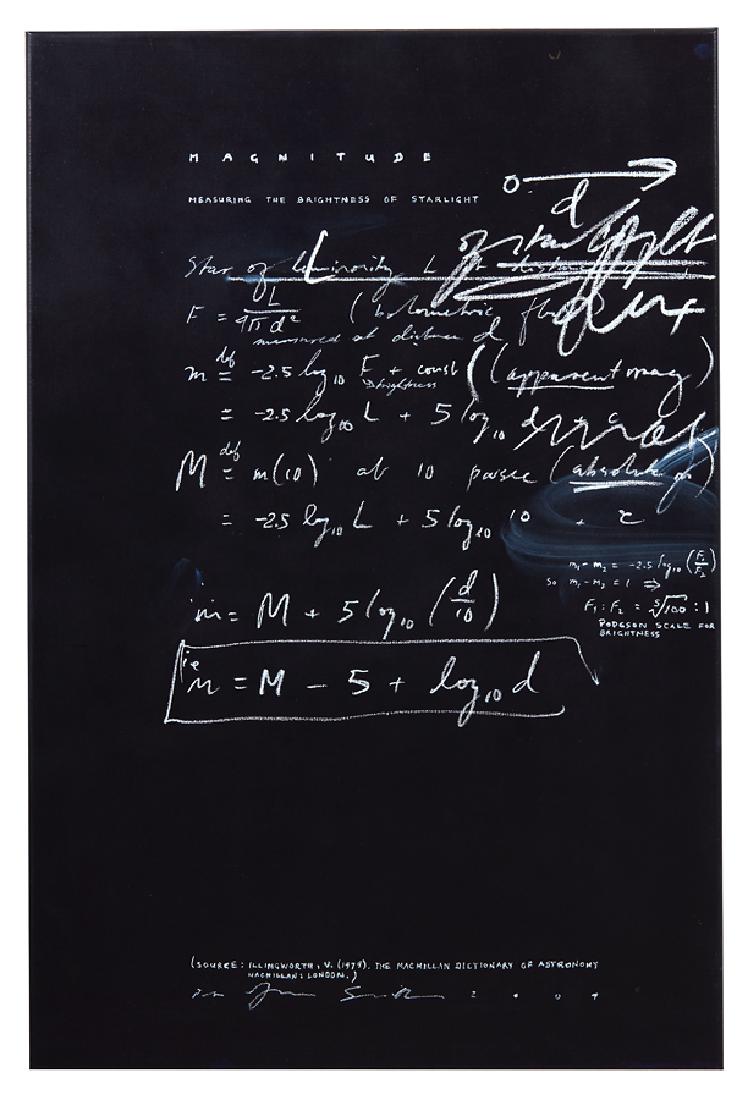 MAGNITUDE
MEASURING THE BRIGHTNESS OF STARLIGHT
O → d
Star of luminosity L
F = L / 4πd² (bolometric flux)
measured at distance d
m ≝ -2.5 log₁₀ F + const (apparent mag)
brightness
= -2.5 log₁₀ L + 5 log₁₀ d + c
M ≝ m(10) at 10 parsec (absolute
= -2.5 log₁₀ L + 5 log₁₀ 10 + c
m₁ - m₂ = -2.5 log₁₀ (F₁/F₂)
So m₁ - m₂ = 1 ⇒
F₁ : F₂ = ⁵√100 : 1
PODGSON SCALE FOR
BRIGHTNESS
m = M + 5 log₁₀ (d/10)
ie
m = M - 5 + log₁₀ d
(SOURCE: ILLINGWORTH, V. (1979). THE MACMILLAN DICTIONARY OF ASTRONOMY
MACMILLAN: LONDON.)
2004